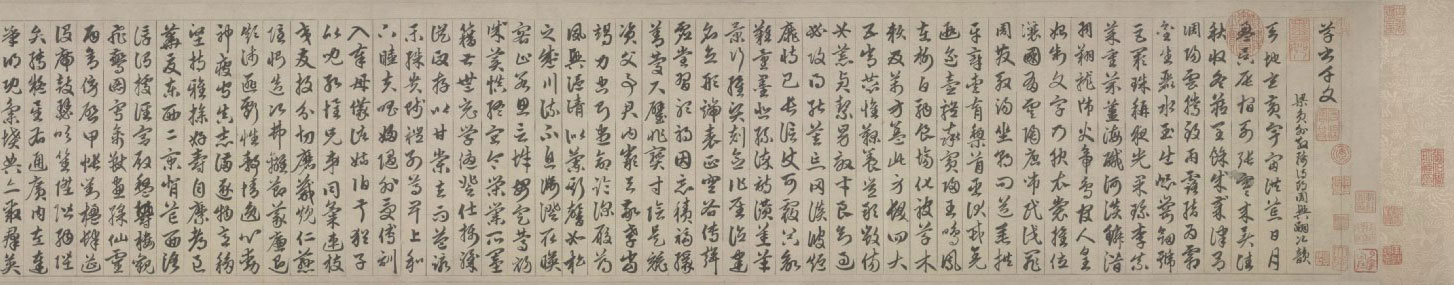 草書千文
梁員外散騎侍郎周興嗣次韻
天地玄黃宇宙洪荒日月
盈昃辰宿列張寒來暑往
秋收冬藏閏餘成歲律呂
調陽雲騰致雨露結為霜
金生麗水玉出崑崗劍號
巨闕珠稱夜光果珍李柰
菜重芥薑海鹹河淡鱗潛
羽翔龍師火帝鳥官人皇
始制文字乃服衣裳推位
讓國有虞陶唐弔民伐罪
周發殷湯坐朝問道垂拱
平章愛育黎首臣伏戎羌
遐邇壹體率賓歸王鳴鳳
在樹白駒食場化被草木
賴及萬方蓋此身髮四大
五常恭惟鞠養豈敢毀傷
女慕貞潔男效才良知過
必改得能莫忘罔談彼短
靡恃己長信使可覆器欲
難量墨悲絲染詩讚羔羊
景行維賢剋念作聖德建
名立形端表正空谷傳聲
虛堂習聽禍因惡積福緣
善慶尺璧非寶寸陰是競
資父事君曰嚴與敬孝當
竭力忠則盡命臨深履薄
夙興溫凊似蘭斯馨如松
之盛川流不息淵澄取映
容止若思言辭安定篤初
誠美慎終宜令榮業所基
籍甚無竟學優登仕攝職
從政存以甘棠去而益詠
樂殊貴賤禮別尊卑上和
下睦夫唱婦隨外受傅訓
入奉母儀諸姑伯叔猶子
比兒孔懷兄弟同氣連枝
交友投分切磨箴規仁慈
隱惻造次弗離節義廉退
顛沛匪虧性靜情逸心動
神疲守真志滿逐物意移
堅持雅操好爵自縻都邑
華夏東西二京背邙面洛
浮渭據涇宮殿盤鬱樓觀
飛驚圖寫禽獸畫綵仙靈
丙舍傍啟甲帳對楹肆筵
設席鼓瑟吹笙陞階納陛
弁轉疑星右通廣內左達
承明既集墳典亦聚群英